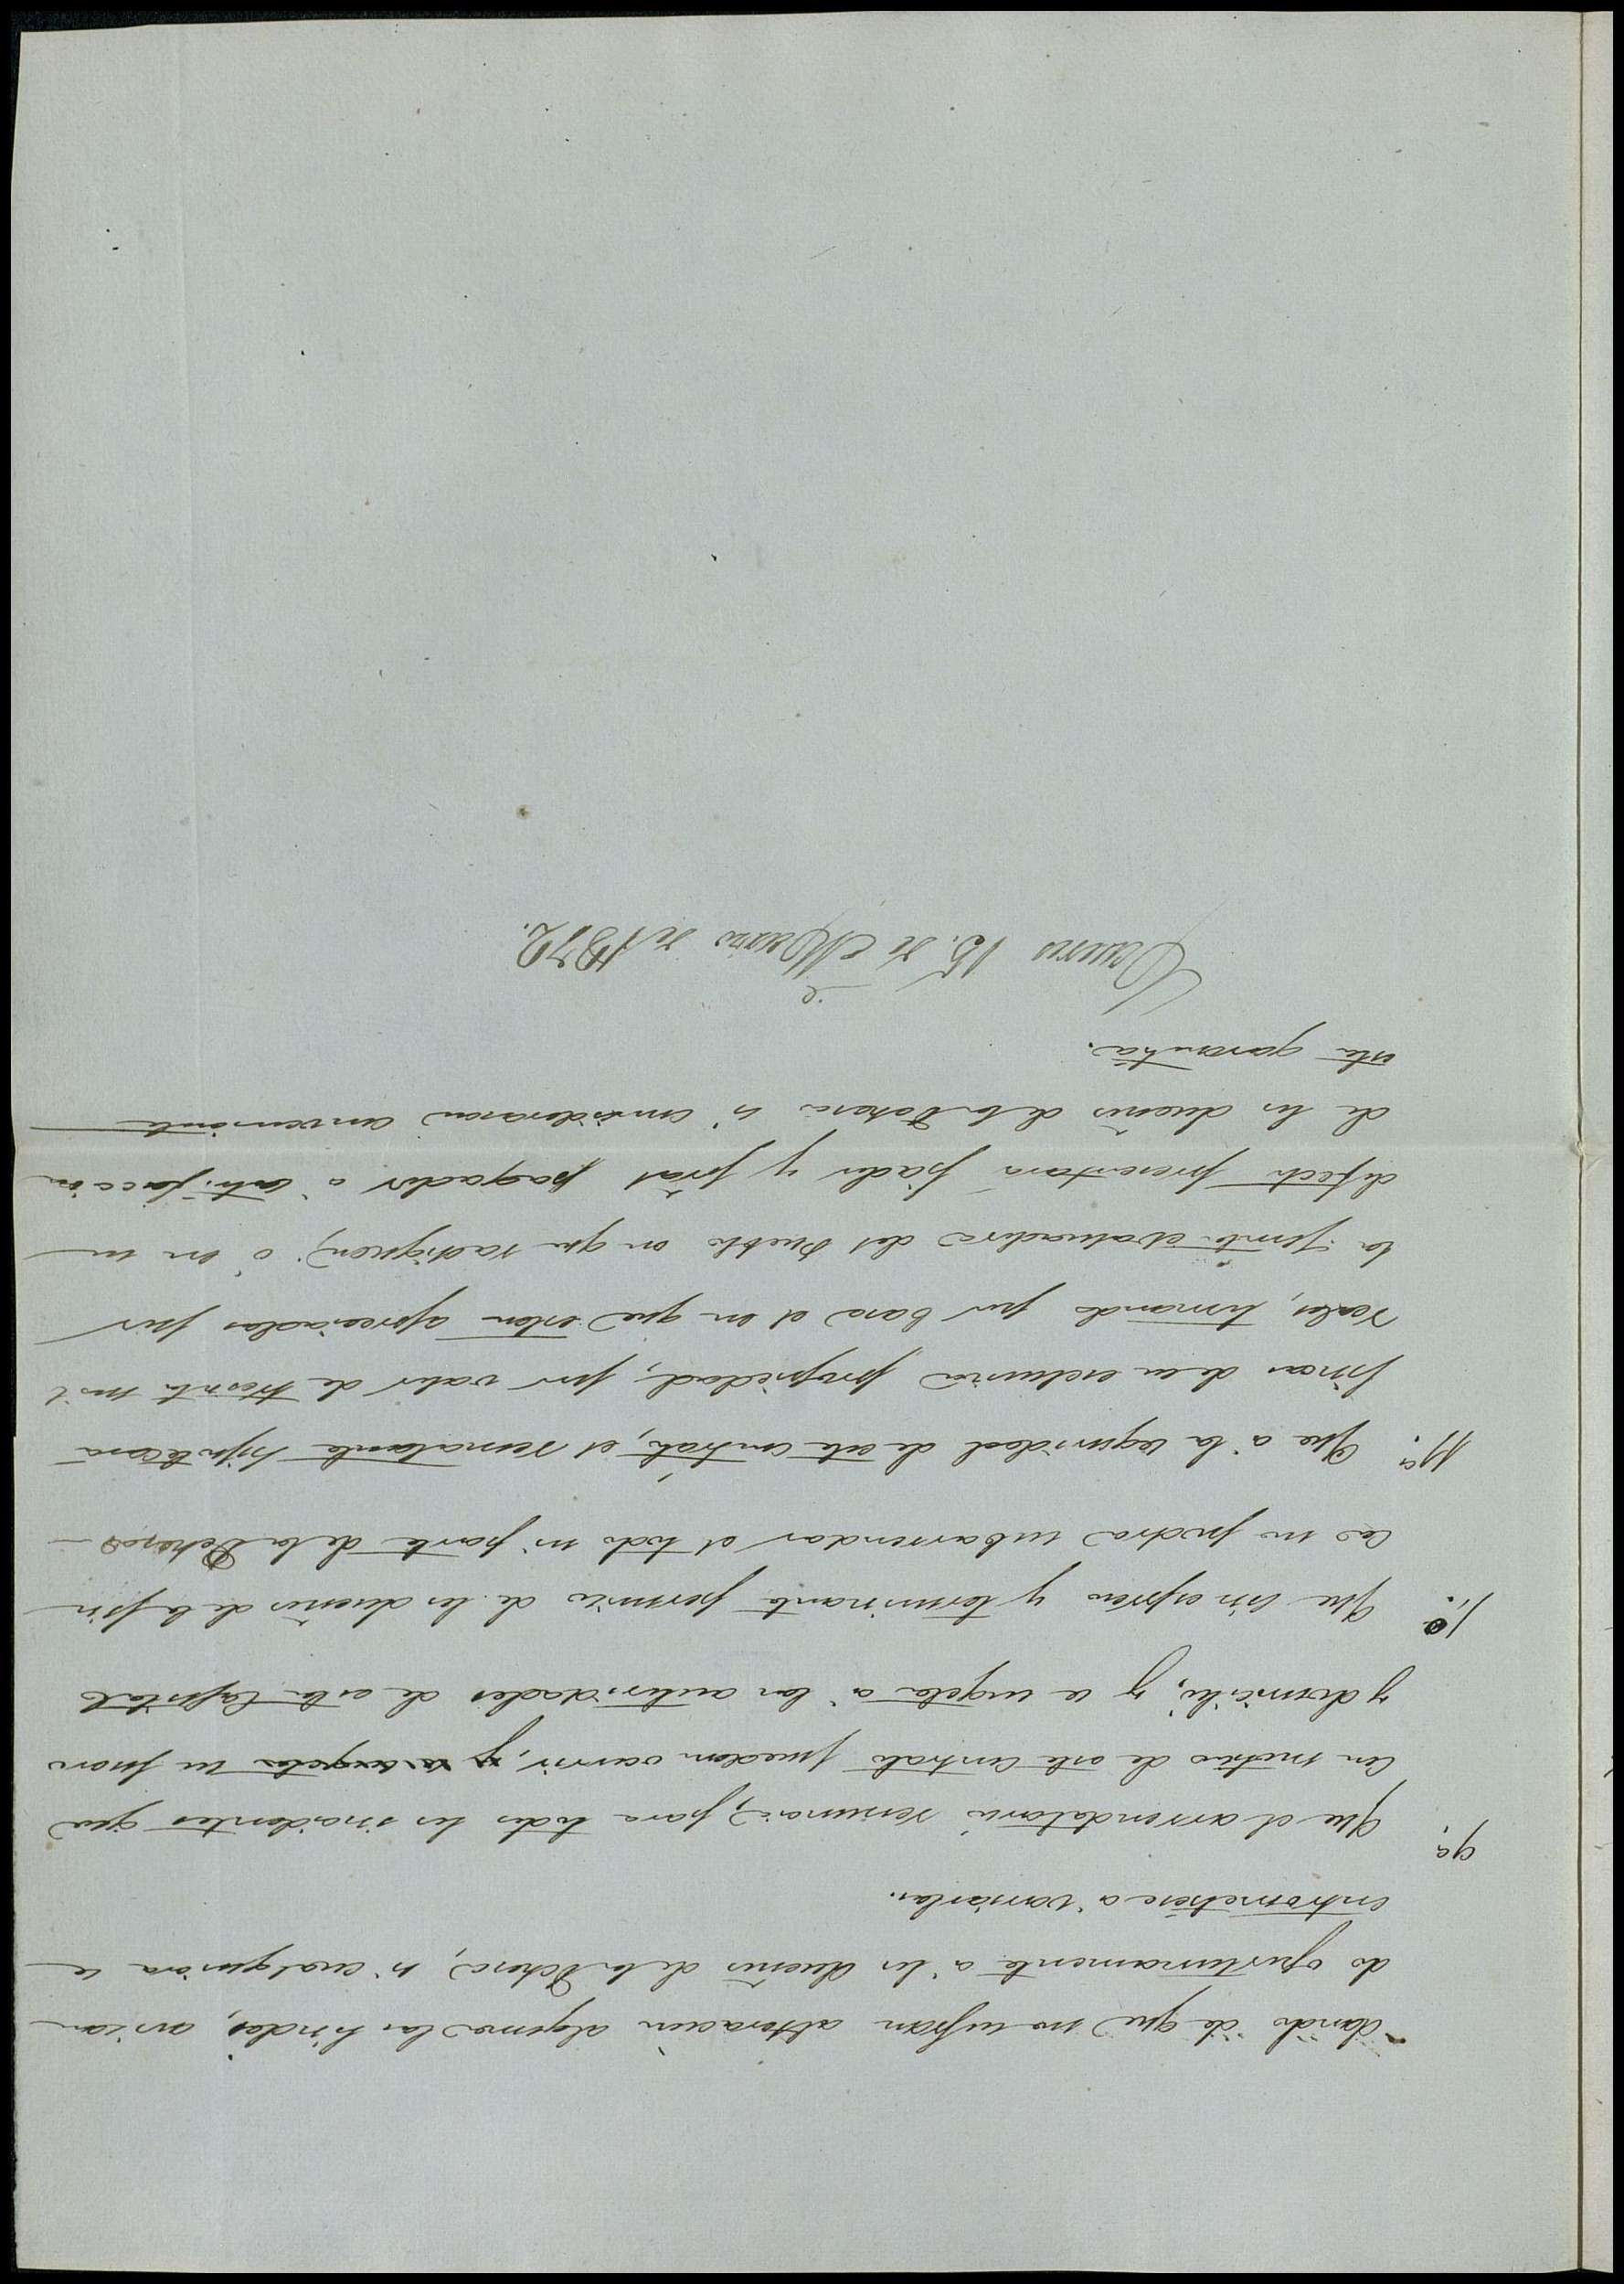 dando de que no sufran alteracion alguna las lindes, avisan
do oportunamente á los dueños de la Dehesa, si cualquiera se
entrometiese á variarlas.
9ª. Que el arrendatario renuncie, para todos los incidentes que
con motivo de este contrato puedan ocurrir, y se sugeta su fuero
y domicilio, y se sugeta á las autoridades de esta Capital
10. Que sin espreso y terminante permiso de los dueños de la fin
ca no podra subarrendar el todo ni parte de la Dehesa
11ª. Que á la seguridad de este contrato, el rematante hipotecará
fincas de su esclusiva propiedad, por valor de treinta mil
reales, tomando por base el en que esten apreciadas por
la Junta evaluadora del Pueblo en que radiquen, ó en su
defecto presentara fiador y pral pagador á satisfaccion
de los dueños de la Dehesa si consideraran conveniente
esta garantia.
15. de Marzo de 1872.